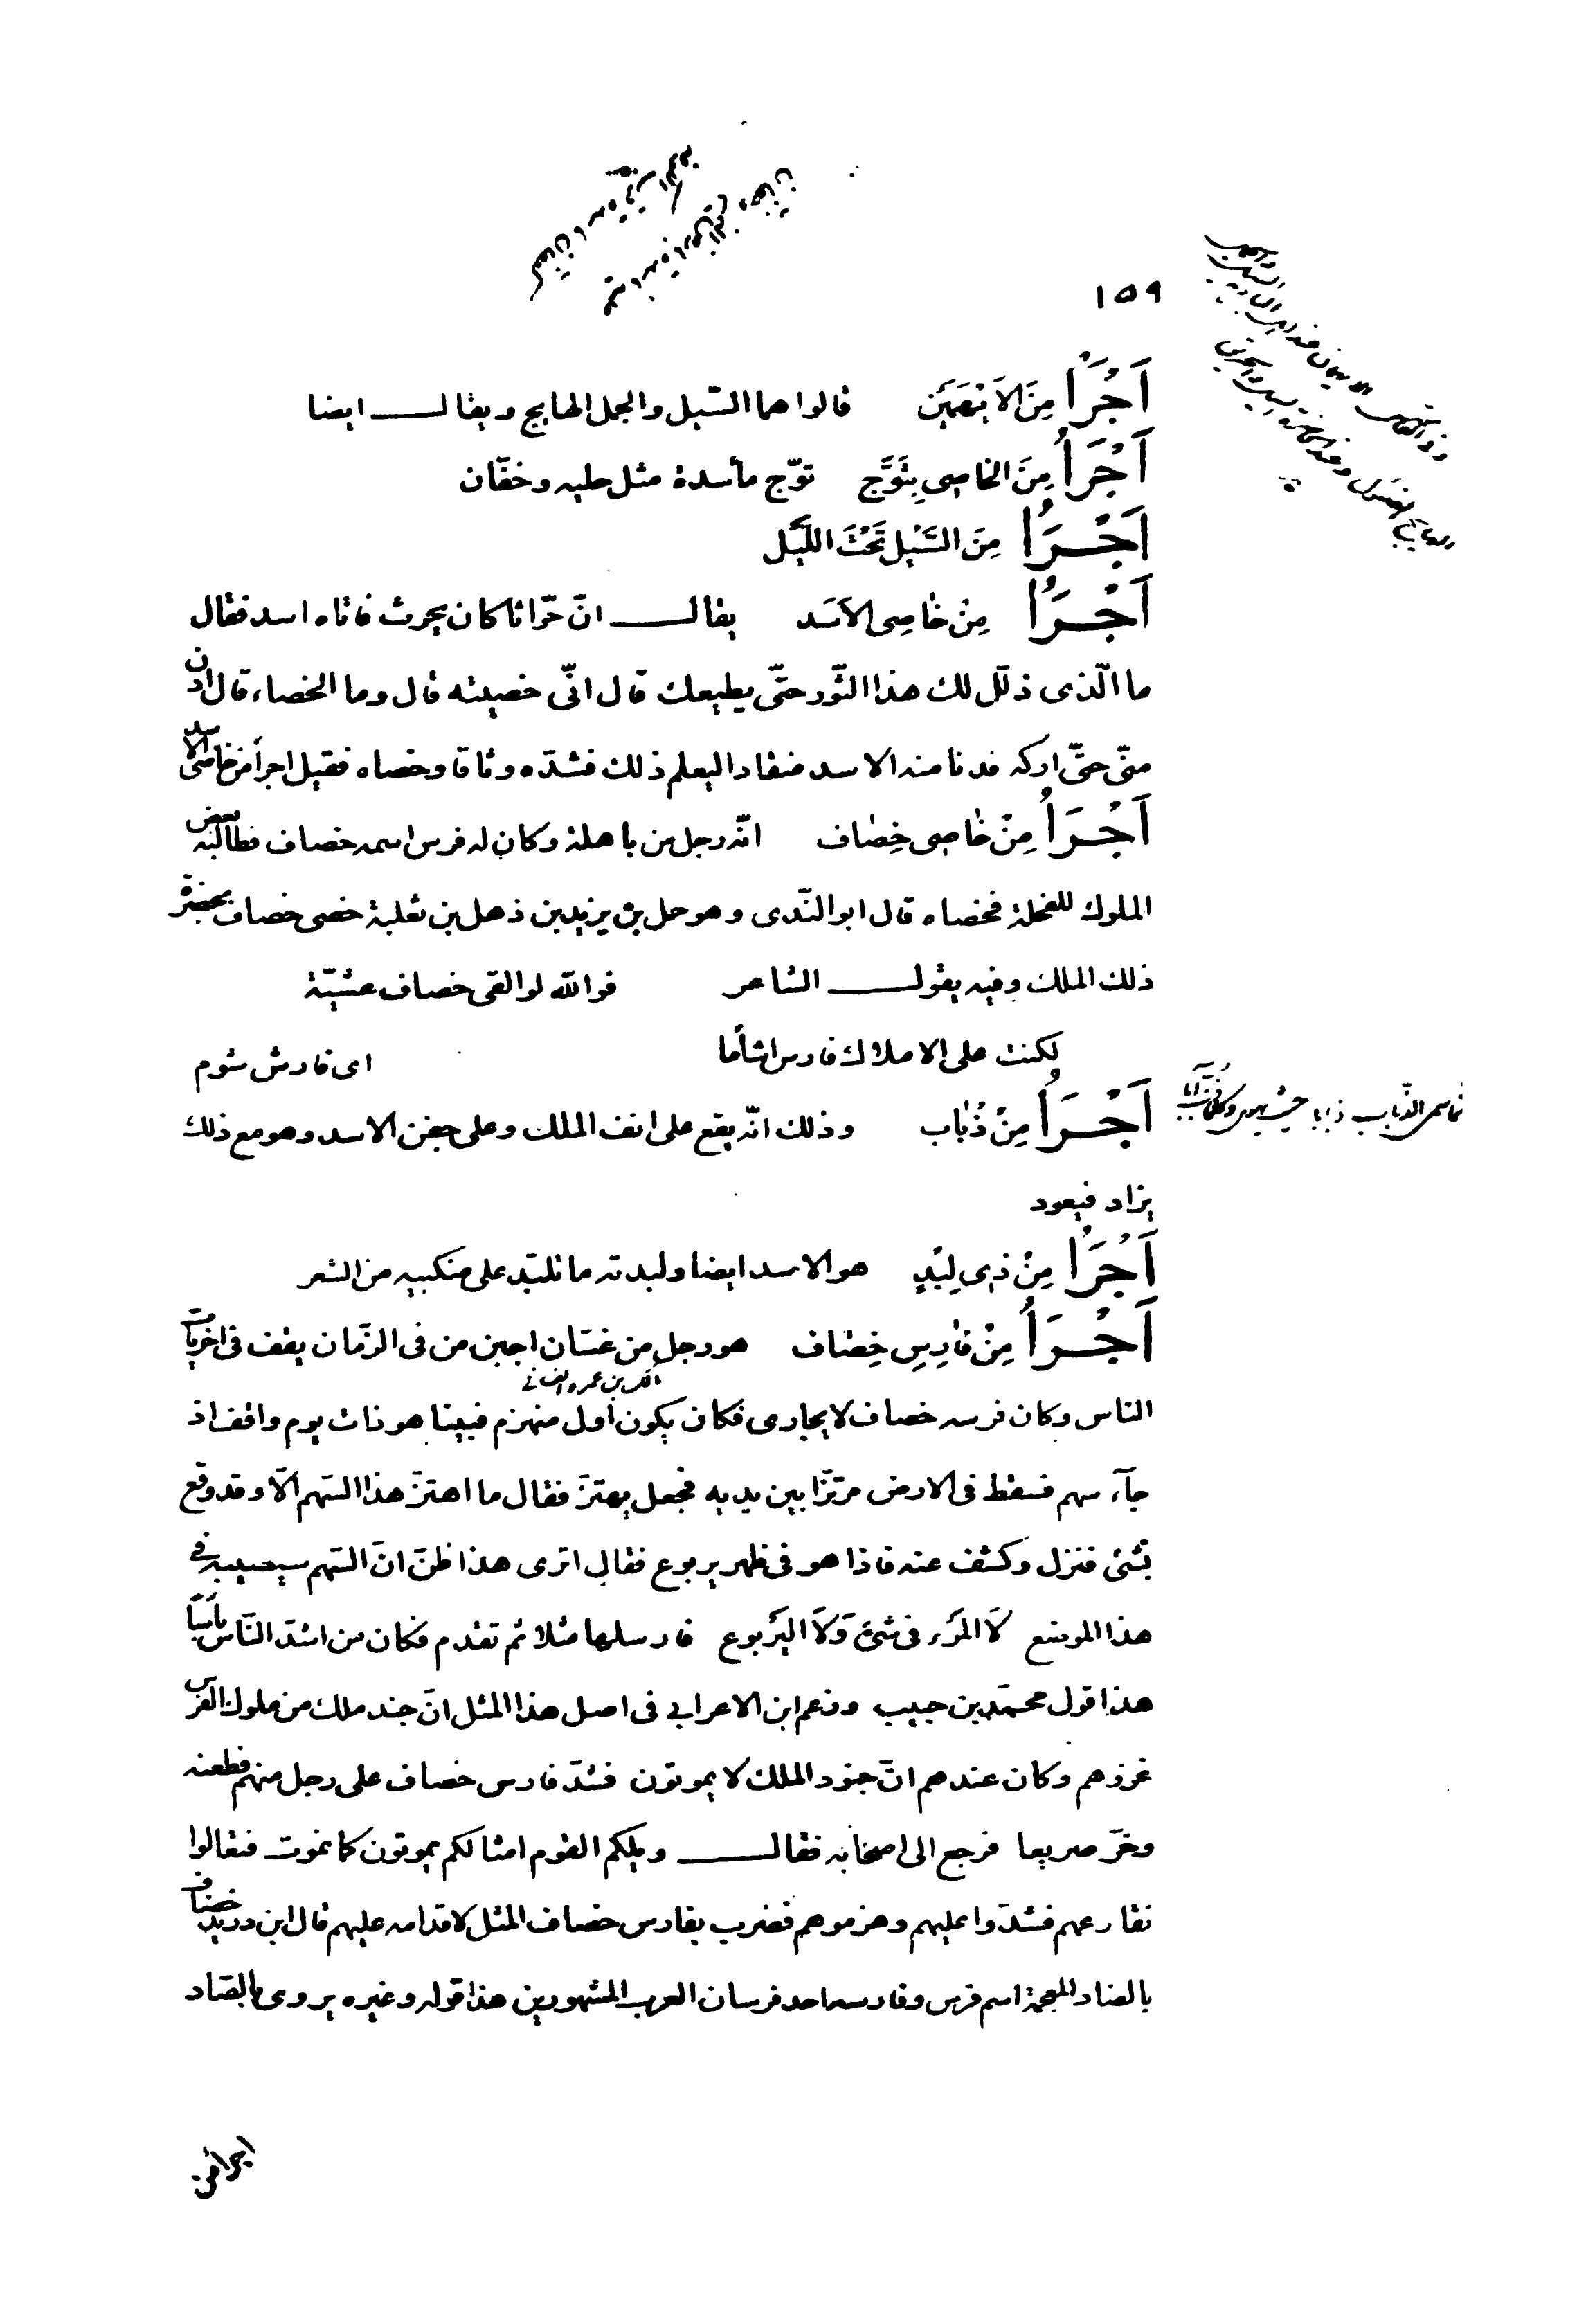 ١٥٩
اَجْرَأُ مِنَ الاَيْهَمَيْنِ قالوا هما السّيل والجمل الهايج ويقال ايضا
اَجْرَأُ مِنَ الخاصِى بِتَوَّجَ توّج مأسدة مثل حليه وخفّان
اَجْرَأُ مِنَ السَّيْلِ تَحْتَ اللَّيْل
اَجْرَأُ مِنْ خاصِى الاَسَد يقال انّ حرّاثا كان يحرث فاتاه اسد فقال
ما الّذى ذلّل لك هذا الثّور حتّى يطيعك قال انّى خصيته قال وما الخصاء قال ادن
منّى حتّى اركه فدنا منه الاسد منقادا ليعلم ذلك فشدّه وثاقا وخصاه فقيل اجرأ من خاصى الاسد
اَجْرَأُ مِنْ خاصِى خِصاف انّه رجل من باهلة وكان له فرس اسمه خصاف فطالبه بعض
الملوك للفحلة فخصاه قال ابو النّدى وهو حمل بن يزيد بن ذهل بن ثعلبة خصى خصاف بحضرة
ذلك الملك وفيه يقول الشاعر فوالله لو القى خصاف عشيّة
لكنت على الاملاك فارس اشأما اى فارس شوم
اَجْرَأُ مِنْ ذُباب وذلك انّه يقع على انف الملك وعلى جفن الاسد وهو مع ذلك
يزاد فيعود
اَجْرَأُ مِنْ ذِى لِبْدٍ هو الاسد ايضا ولبدته ما تلبّد على منكبيه من الشعر
اَجْرَأُ مِنْ فارِسِ خِصاف هو رجل من غسّان اجبن من فى الزّمان يقف فى اخريات
الناس وكان فرسه خصاف لا يجارى فكان يكون اول منهزم فبينا هو ذات يوم واقف اذ
جآء سهم فسقط فى الارض مرتزّا بين يديه فجعل يهتزّ فقال ما اهتزّ هذا السّهم الّا وقد وقع
بشئ فنزل وكشف عنه فاذا هو فى ظهر يربوع فقال اترى هذا ظنّ انّ السّهم سيصيبه فى
هذا الموضع لَا المَرْء فى شَئٍ وَّلَا اليَرْبوع فارسلها مثلا ثم تقدم فكان من اشدّ النّاس بأسًا
هذا قول محمّد بن حبيب وزعم ابن الاعرابى فى اصل هذا المثل انّ جند ملك من ملوك الفرس
غزوهم وكان عندهم انّ جنود الملك لا يموتون فشدّ فارس خصاف على رجل منهم فطعنه
وخرّ صريعا فرجع الى اصحابه فقال ويلكم القوم امثالكم يموتون كما نموت فتعالوا
نقارعهم فشدّوا عليهم وهزموهم فضرب بفارس خصاف المثل لاقدامه عليهم قال ابن دريد خضاف
بالضاد المعجمة اسم فرس وفارسه احد فرسان العرب المشهورين هذا قوله وغيره يروى بالصّاد
اجرأ من